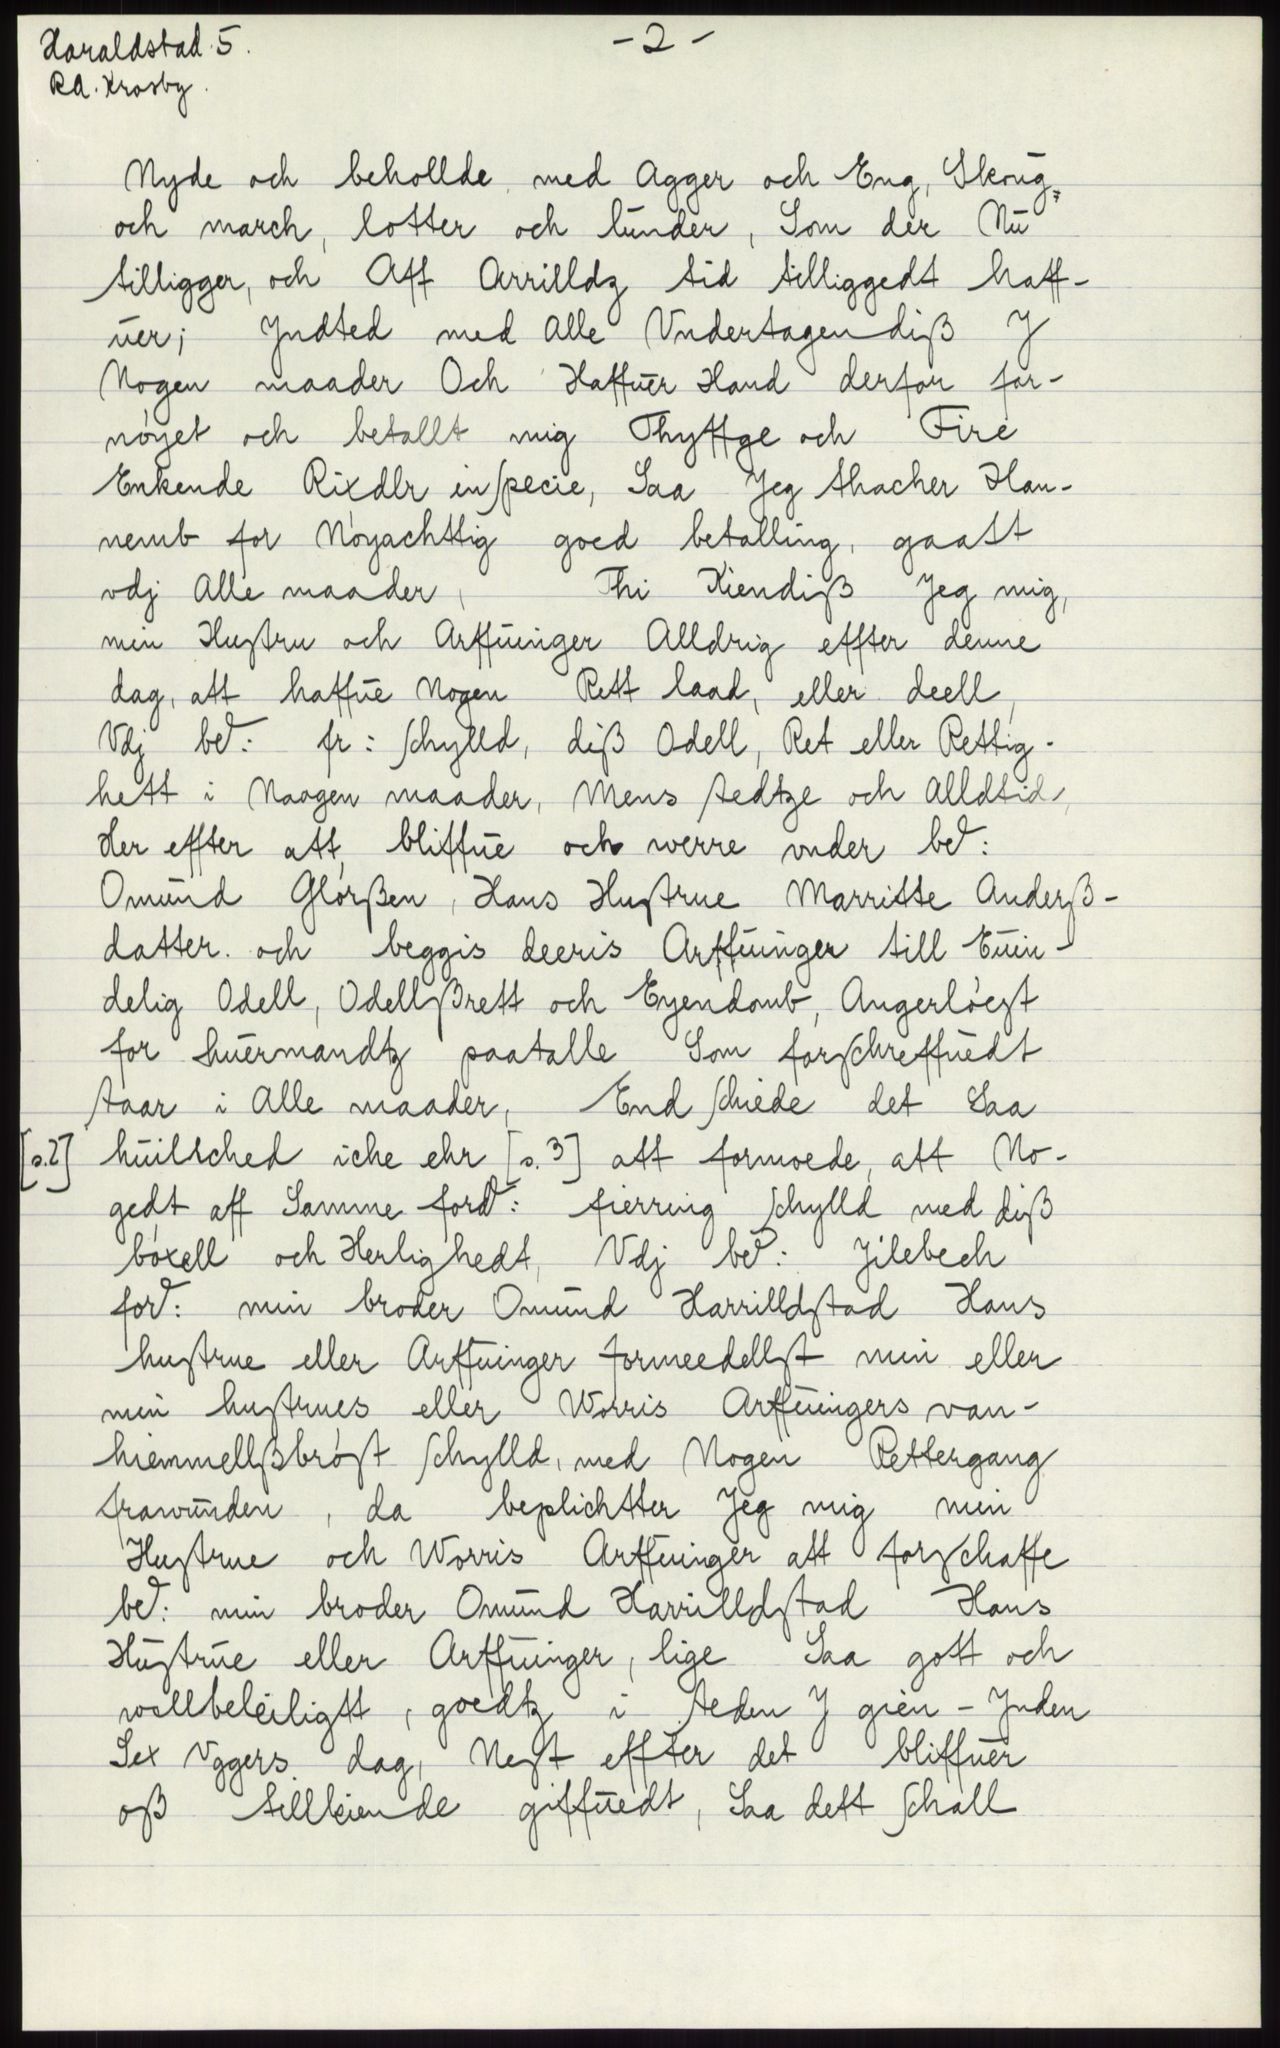 Haraldstad. 5.
- 2 -
RA. Krosby.
Nyde och behollde, med Agger och Eng, Skoūg
och march, lotter och lūnder, Som der Nū
tilligger, och Aff Arrilldz tid tilliggedt haff-
ūer; Jndted med Alle Vndertagen diß J
Nogen maader Och Haffūer Hand derfor for-
nóyet och betallt mig Thyffge och Fire
Enkende Rixdlr in specie, Saa Jeg thacher Han-
nemb for Nóyachttig goed betalling, gaatt
vdj Alle maader, Thi Kiendiß Jeg mig,
min Hustru och Arffūinger Alldrig effter denne
dag, att haffūe Nogen Rett laad, eller deell,
Vdj bed: fr: schylld, diß Odell, Ret eller Rettig-
hett i Naagen maader, Mens stedtze och Alldtid,
Her effter att, bliffūe och werre vnder bed:
Omūnd Glórßen, Hans Hustrue Marritte Anderß-
datter. och beggis deeris Arffūinger till Eūin-
delig Odell, Odellßrett och Eyendomb, Angerlóest
for hūermandtz paatalle Som forschreffūedt
staar i Alle maader, End schiede det Saa
[s.2] hūilsched iche ehr [s.3] att formoede, att No-
gedt aff Samme ford: fierring schylld med diß
bóxell och Herlighedt, Vdj bed: Jilebech
ford: min broder Omūnd Harrilldstad Hans
hustrue eller Arffuinger formeedellst min eller
min hustrues eller Worris Arffūingers van-
hiemmellßbróst schylld, med Nogen Rettergang
frawūnden, da beplichtter Jeg mig min
Hustrue och Worris Arffuinger att forschaffe
bed: min broder Omūnd Harrilldstad Hans
Hūstrūe eller Arffūinger, lige Saa gott och
wellbeleiligtt, goedtz i steden J gien - Jnden
Sex Vggers dag, Nest effter det bliffūer
oß tillkiende giffūedt, Saa dett schall